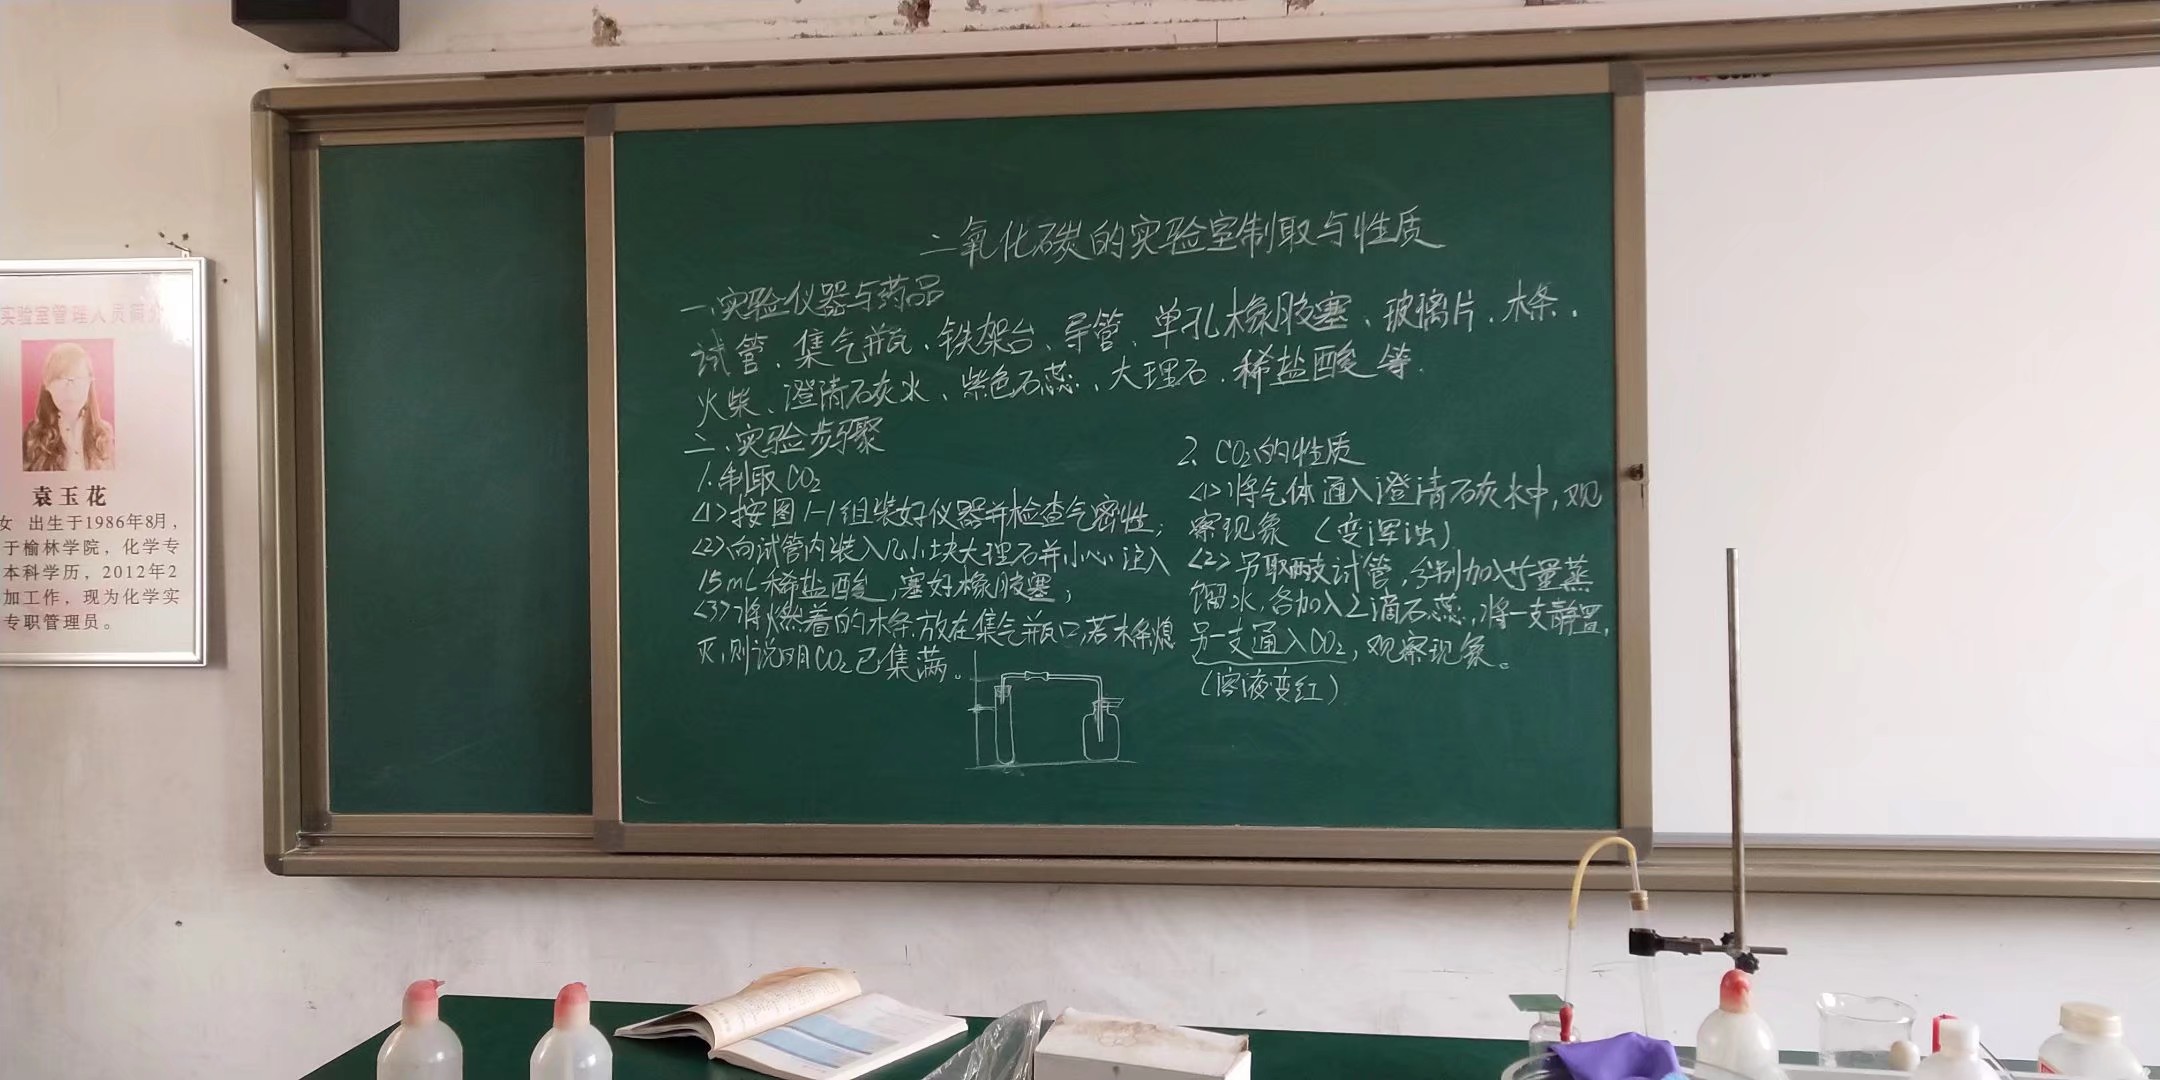 二氧化碳的实验室制取与性质
一、实验仪器与药品
试管、集气瓶、铁架台、导管、单孔橡胶塞、玻璃片、木条、
火柴、澄清石灰水、紫色石蕊、大理石、稀盐酸等.
二、实验步骤
1.制取CO₂
<1>按图1-1组装好仪器并检查气密性;
<2>向试管内装入几小块大理石并小心注入
15mL稀盐酸,塞好橡胶塞;
<3>将燃着的木条放在集气瓶口,若木条熄
灭,则说明CO₂已集满。
2、CO₂的性质
<1>将气体通入澄清石灰水中,观
察现象(变浑浊)
<2>另取两支试管,分别加入少量蒸
馏水,各加入2滴石蕊,将一支静置,
另一支通入CO₂,观察现象。
(溶液变红)
实验室管理人员简介
袁玉花
女 出生于1986年8月,
于榆林学院,化学专
本科学历,2012年2
加工作,现为化学实
专职管理员。